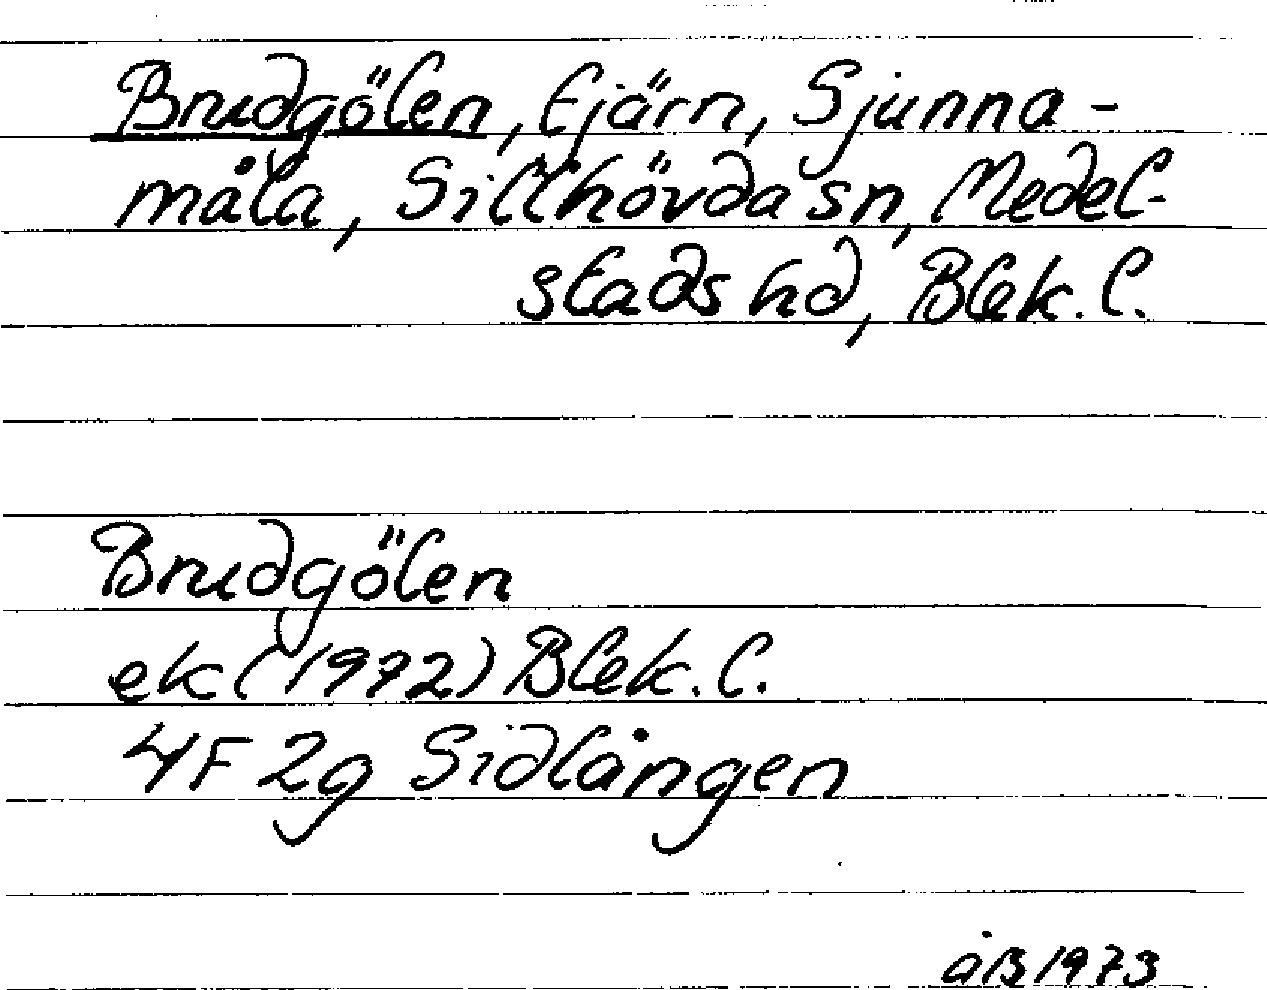 Brudgölen, tjärn, Sjunna-
måla, Sillhövda sn, Medel-
stads hd, Blek. l.
Brudgölen
ek (1972) Blek. l.
4F 2g Sidlången
åB 1973